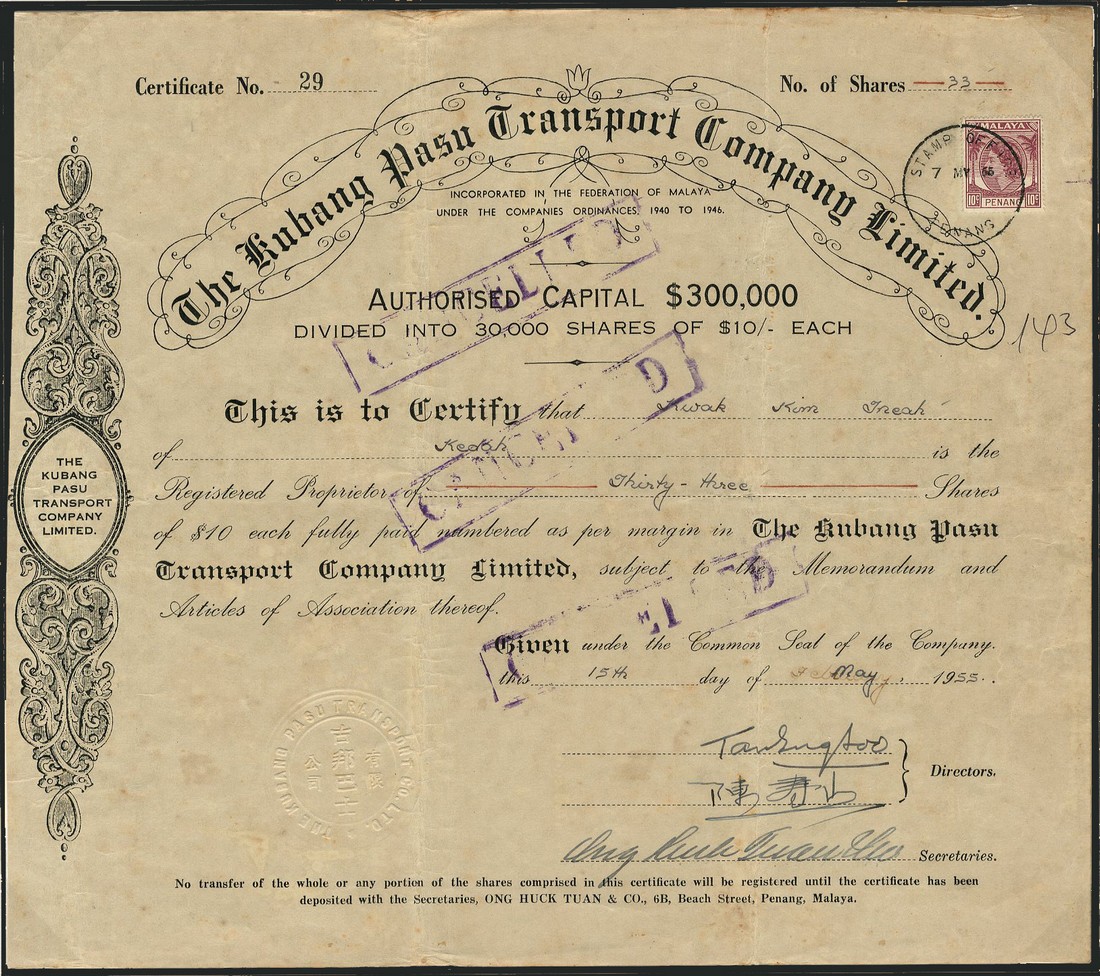 Certificate No. 29
No. of Shares 33
The Kubang Pasu Transport Company Limited.
INCORPORATED IN THE FEDERATION OF MALAYA
UNDER THE COMPANIES ORDINANCES, 1940 TO 1946.
MALAYA
10c PENANG 10c
STAMP OFFICE
7 MY 55
PENANG
AUTHORISED CAPITAL $300,000
DIVIDED INTO 30,000 SHARES OF $10/- EACH
143
CANCELLED
This is to Certify that Kwak Kim
of Kedah is the
Registered Proprietor of Thirty-three Shares
of $10 each fully paid numbered as per margin in The Kubang Pasu
Transport Company Limited, subject to the Memorandum and
Articles of Association thereof.
CANCELLED
CANCELLED
THE
KUBANG
PASU
TRANSPORT
COMPANY
LIMITED.
Given under the Common Seal of the Company.
this 15th day of May, 1955.
THE KUBANG PASU TRANSPORT CO. LTD.
古邦巴士
有限
公司
Directors.
Secretaries.
No transfer of the whole or any portion of the shares comprised in this certificate will be registered until the certificate has been
deposited with the Secretaries, ONG HUCK TUAN & CO., 6B, Beach Street, Penang, Malaya.